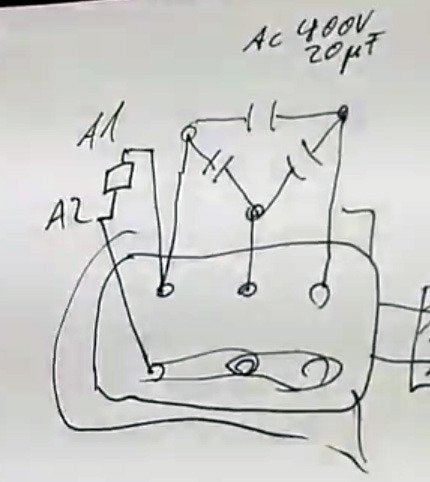 AC 400V
20µF
A1
A2